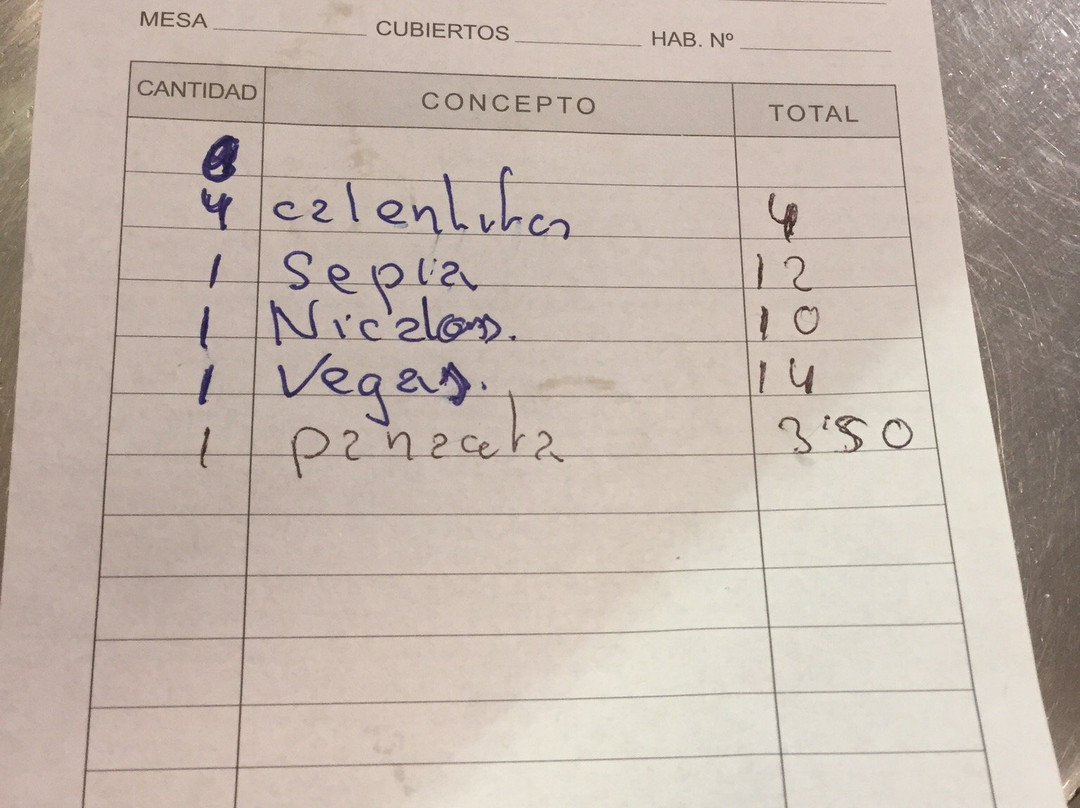 MESA CUBIERTOS HAB. Nº
CANTIDAD CONCEPTO TOTAL
4 calentitas 4
1 Sepia 12
1 10
1 Vegas. 14
1 panaceta 3'50